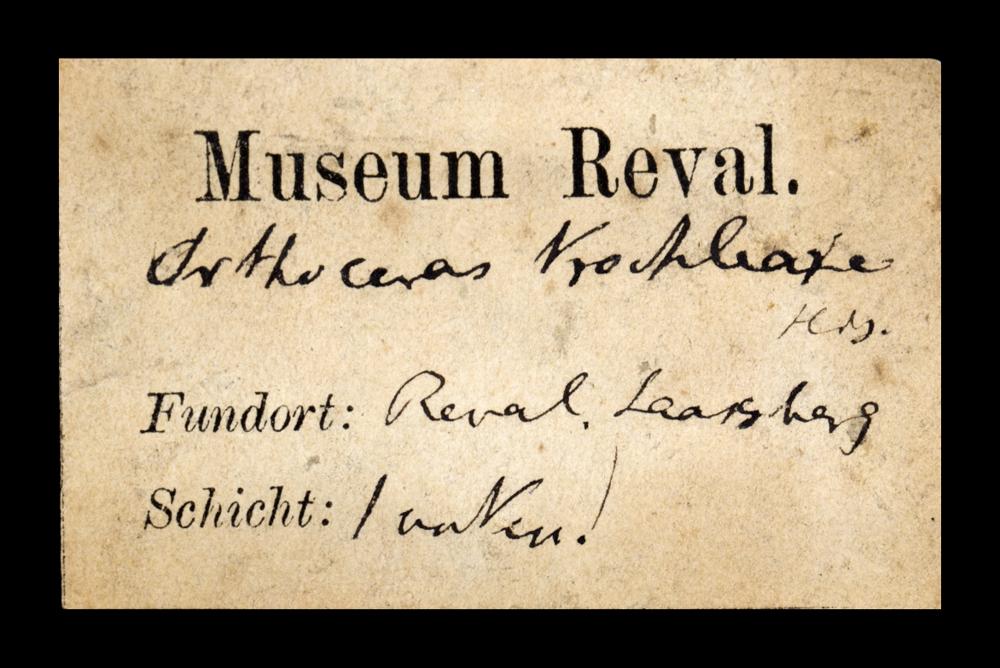 Museum Reval.
Orthoceras trochleare
His.
Fundort: Reval. Laaksberg
Schicht: